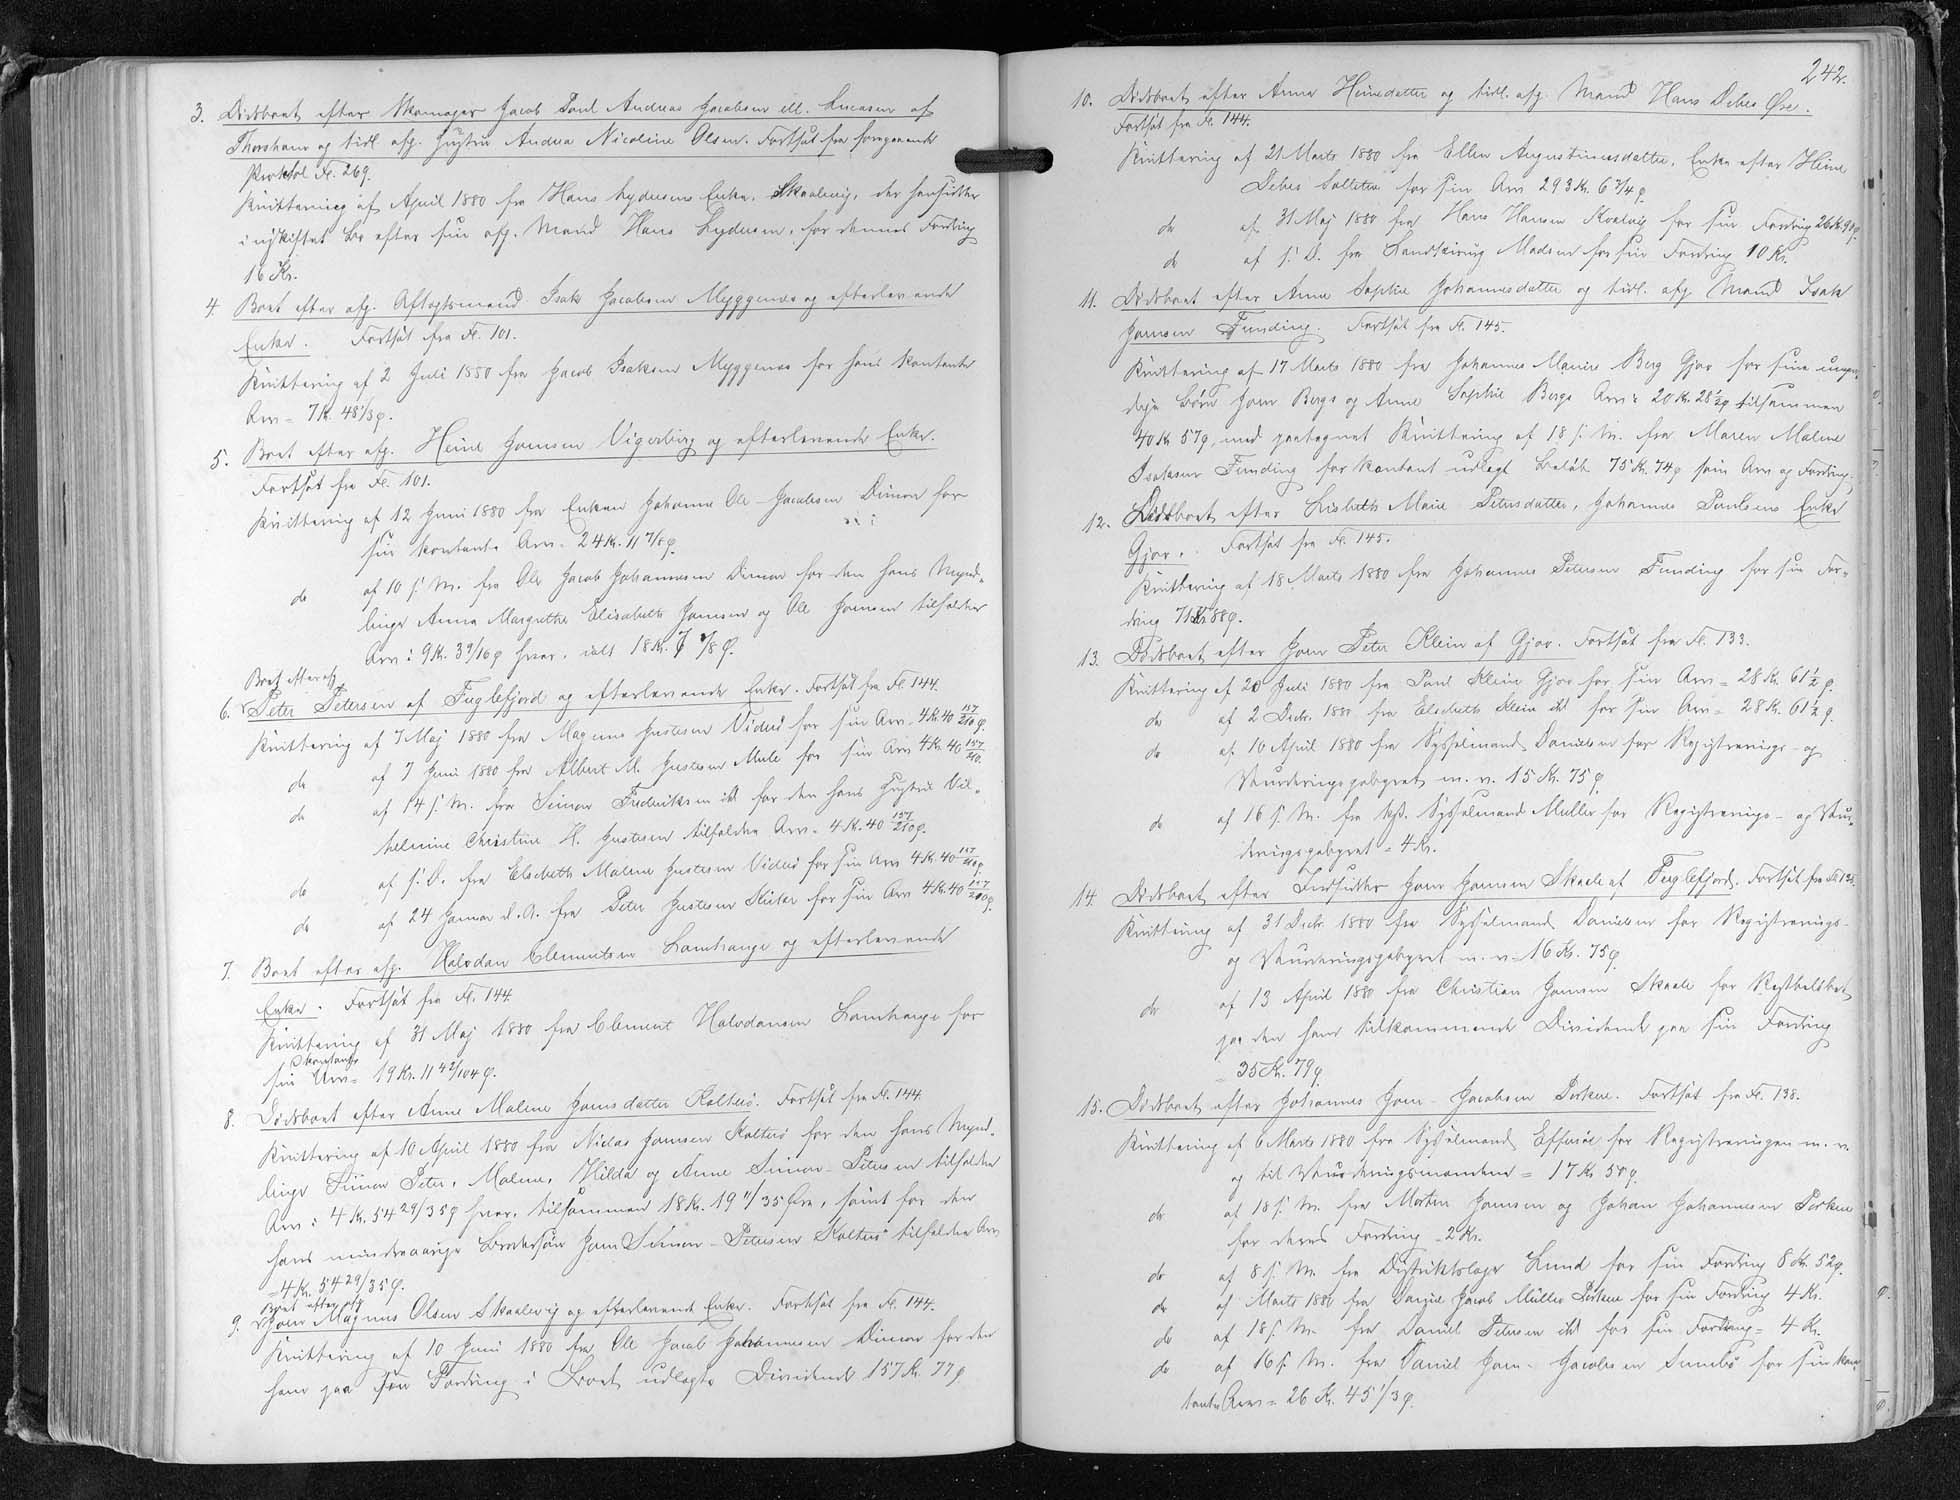 3. Dödsboet efter Skomager Jacob Poul Andreas Jacobsen ell. Lucasen af
Thorshavn og tidl. afg. Hustru Andrea Nicoline Olsen. Fortsat fra foregaaende
Protokol Fl. 269.
Kvittering af April 1880 fra Hans Lydersens Enke, Skaalevig, der hensidder
i uskiftet Bo efter sin afg. Mand Hans Lydersen, for dennes Fordring
16 Kr.
4. Boet efter afg. Aftægtsmand Isak Jacobsen Myggenæs og efterlevende
Enke. Fortsat fra Fl. 101.
Kvittering af 2 Juli 1880 fra Jacob Isaksen Myggenæs for hans kontante
Arv = 7 Kr. 48 1/3 ø.
5. Boet efter afg. Heine Joensen Vigerbirg og efterlevende Enke.
Fortsat fra Fl. 101.
Kvittering af 12 Juni 1880 fra Enken Johanne Ole-Jacobsen Dimon for
sin kontante Arv = 24 Kr. 11 7/8 ø.
do af 10 s. M. fra Ole Jacob Johannesen Dimon for den hans Mynd-
linge Anna Margrethe Elisabeth Joensen og Ole Joensen tilfaldne
Arv : 9 Kr. 3 9/16 ø hver, ialt 18 Kr. 7 1/8 ø.
Boet efter afg.
6. Peter Petersen af Fuglefjord og efterlevende Enke. Fortsat fra Fl. 144.
Kvittering af 7 Maj 1880 fra Magnus Justesen Viderö for sin Arv = 4 Kr. 40 157/210 ø.
do af 7 Juni 1880 fra Albert M. Justesen Mule for sin Arv 4 Kr. 40 157/210.
do af 14 s. M. fra Simon Frederiksen ibd for den hans Hustru Vil-
helmine Christine H. Justesen tilfaldne Arv = 4 Kr. 40 157/210 ø.
do af s. D. fra Elsebeth Malene Justesen Viderö for sin Arv 4 Kr. 40 157/210 ø.
do af 24 Januar d. A. fra Peter Justesen for sin Arv 4 Kr. 40 157/210 ø.
7. Boet efter afg. Halvdan Clementsen Lamhauge og efterlevende
Enke. Fortsat fra Fl. 144.
Kvittering af 31 Maj 1880 fra Clement Halvdansen Lamhauge for
sin kontante Arv = 19 Kr. 11 42/104 ø.
8. Dödsboet efter Anne Malene Joensdatter Kolterö. Fortsat fra Fl. 144.
Kvittering af 10 April 1880 fra Niclas Joensen Kolterö for den hans Mynd-
linge Simon Peter, Malene, Hilda og Anne Simon-Petersen tilfaldne
Arv : 4 Kr. 54 29/35 ø hver, tilsammen 18 Kr. 19 11/35 Øre, samt for den
hans mindreaarige Brodersön Joen Simon-Petersen Kolterö tilfaldne Arv
= 4 Kr. 54 29/35 ø.
Boet efter afg.
9. Joen Magnus Olsen Skaalevig og efterlevende Enke. Fortsat fra Fl. 144.
Kvittering af 10 Juni 1880 fra Ole Jacob Johannesen Dimon for den
ham paa sin Fordring i Boet udlagte Dividende 157 Kr. 77 ø
242.
10. Dödsboet efter Anna Heinedatter og tidl. afg. Mand Hans Debes Øre.
Fortsat fra Fl. 144.
Kvittering af 21 Marts 1880 fra Ellen Augustinusdatter, Enke efter Heine
Debes Selletræ for sin Arv 293 Kr. 6 3/4 ø.
do af 31 Maj 1880 fra Hans Hansen Kvalvig for sin Fordring 26 Kr. 90 ø.
do af s. D. fra Landkirurg Madsen for sin Fordring 10 Kr.
11. Dödsboet efter Anne Sophie Johannesdatter og tidl. afg. Mand Isak
Joensen Funding. Fortsat fra Fl. 145.
Kvittering af 17 Marts 1880 fra Johannes Marius Berg Gjov for sine umyn-
dige Börn Joen Bergs og Anne Sophie Bergs Arv : 20 Kr. 28 1/2 ø tilsammen
40 Kr. 57 ø, med paategnet Kvittering af 18 s. M. fra Maren Malene
Isaksen Funding for kontant udlagt Belöb 75 Kr. 74 ø som Arv og Fordring.
12. Dödsboet efter Lisbeth Marie Petersdatter, Johannes Poulsens Enke
Gjov. Fortsat fra Fl. 145.
Kvittering af 18 Marts 1880 fra Johannes Petersen Funding for sin For-
dring 71 Kr. 88 ø.
13. Dödsboet efter Joen Peter Klein af Gjov. Fortsat fra Fl. 133.
Kvittering af 20 Juli 1880 fra Poul Klein Gjov for sin Arv = 28 Kr. 61 1/2 ø.
do af 2 Decbr. 1880 fra Elsebeth Klein ibd for sin Arv = 28 Kr. 61 1/2 ø.
do af 10 April 1880 fra Sysselmand Danielsen for Registrerings- og
Vurderingsgebyret m. v. 15 Kr. 75 ø.
do af 16 s. M. fra kst. Sysselmand Müller for Registrerings- og Vur-
deringsgebyret = 4 Kr.
14. Dödsboet efter Indsidder Joen Joensen Skaale af Fuglefjord. Fortsat fra Fl. 13
Kvittering af 31 Decbr. 1880 fra Sysselmand Danielsen for Registrerings-
og Vurderingsgebyret m. v. = 16 Kr. 75 ø
do af 13 April 1880 fra Christian Joensen Skaale for Restbelöbet
paa den ham tilkommende Dividende paa sin Fordring
= 35 Kr. 79 ø.
15. Dödsboet efter Johannes Joen-Jacobsen Porkere. Fortsat fra Fl. 138.
Kvittering af 6 Marts 1880 fra Sysselmand Effersöe for Registreringen m. v.
og til Vurderingsmændene = 17 Kr. 50 ø.
do af 18 s. M. fra Morten Joensen og Johan Johannesen Porkere
for deres Fordring = 2 Kr.
do af 8 s. M. fra Distriktslæge Lund for sin Fordring 8 Kr. 52 ø.
do af Marts 1880 fra Daniel Jacob Müller Porkere for sin Fordring 4 Kr.
do af 18 s. M. fra Daniel Petersen ibd for sin Fordring = 4 Kr.
do af 16 s. M. fra Daniel Joen-Jacobsen Sumbö for sin kon-
tante Arv = 26 Kr. 45 1/3 ø.